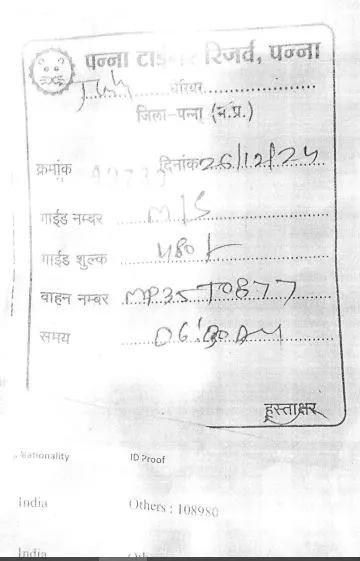 पन्ना टाईगर रिजर्व, पन्ना
बैरियर
जिला-पन्ना (म.प्र.)
क्रमांक
दिनांक 26/12/24
गाईड नम्बर M/S
गाईड शुल्क 480/-
वाहन नम्बर MP35T0877
समय 06:30 AM
हस्ताक्षर
Nationality ID Proof
India Others : 108980
India